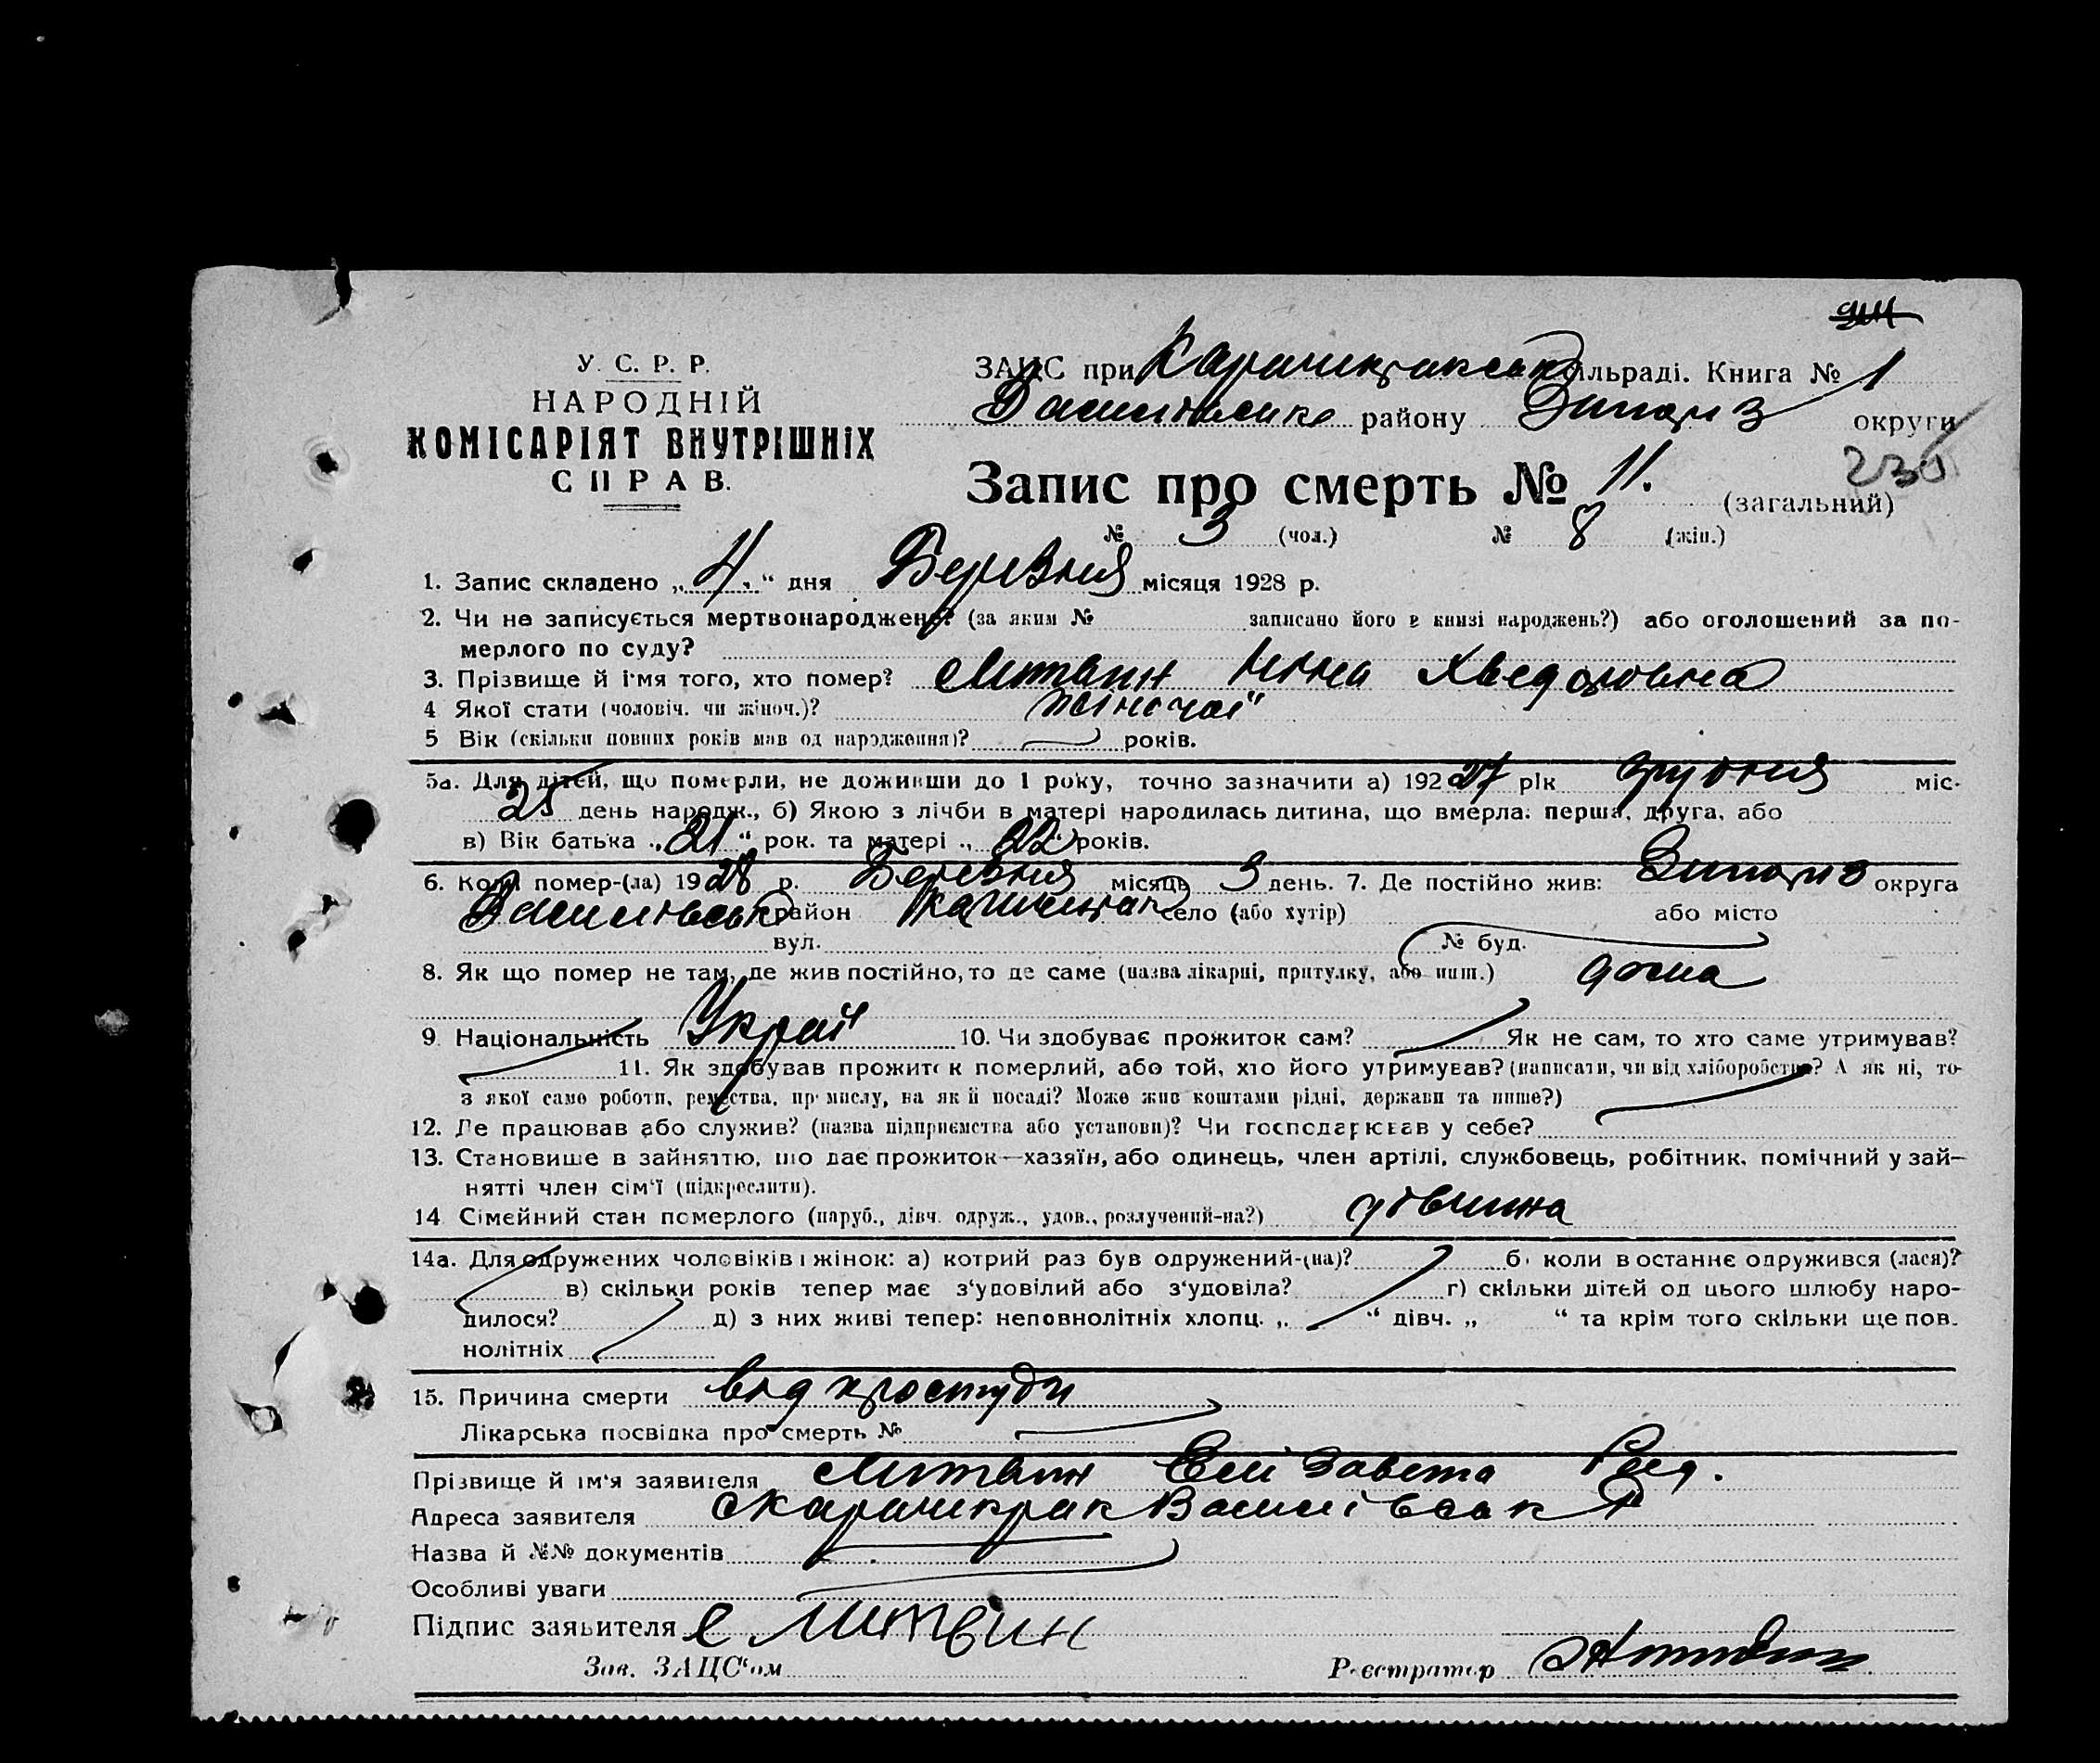 У. С. Р. Р.
НАРОДНІЙ
КОМІСАРІЯТ ВНУТРІШНІХ
СПРАВ.
ЗАЦС при Карачикракськ сільраді. Книга № 1
Василівська району Запоріз округи
235
Запис про смерть № 11. (загальний)
№ 3 (чол.) № 8 (жін.)
1. Запис складено „4.“ дня Березня місяця 1928 р.
2. Чи не записується мертвонароджене? (за яким № записано його в книзі народжень?) або оголошений за по-
мерлого по суду?
3. Прізвище й ім'я того, хто помер? Литвин Нина Хведоровна
4 Якої стати (чоловіч. чи жіноч.)? жіночаї
5 Вік (скільки повних років мав од народження)? років.
5а. Для дітей, що померли, не доживши до 1 року, точно зазначити а) 192 27 рік грудня міс.
25 день народж., б) Якою з лічби в матері народилась дитина, що вмерла: перша, друга, або
в) Вік батька „21“ рок. та матері „22“ років.
6. Коли помер-(ла) 1928 р. Березня місяць 3 день. 7. Де постійно жив: Запоріз округа
Василівськ район село (або хутір) або місто
вул. № буд.
8. Як що помер не там, де жив постійно, то де саме (назва лікарні, притулку, або инш.) дома
9. Національність Украй 10. Чи здобуває прожиток сам? Як не сам, то хто саме утримував?
11. Як здобував прожиток померлий, або той, хто його утримував? (написати, чи від хліборобства? А як ні, то
з якої само роботи, ремества, промислу, на якій посаді? Може жив коштами рідні, держави та инше?)
12. Де працював або служив? (назва підприємства або установи)? Чи господарював у себе?
13. Становище в зайняттю, що дає прожиток—хазяїн, або одинець, член артілі, службовець, робітник, помічний у зай-
нятті член сім'ї (підкреслити).
14. Сімейний стан померлого (паруб., дівч. одруж., удов., розлучений-на?) дівчина
14а. Для одружених чоловіків і жінок: а) котрий раз був одружений-(на)? б) коли востаннє одружився (лася)?
в) скільки років тепер має з'удовілий або з'удовіла? г) скільки дітей од цього шлюбу наро-
дилося? д) з них живі тепер: неповнолітніх хлопц. „ “ дівч. „ “ та крім того скільки ще пов-
нолітніх
15. Причина смерти від простуди
Лікарська посвідка про смерть №
Прізвище й ім'я заявителя Литвин Елізавета
Адреса заявителя с Карачикрак Василівськ Р
Назва й №№ документів
Особливі уваги
Підпис заявителя Е Литвин
Зав. ЗАЦС'ом Реєстратор